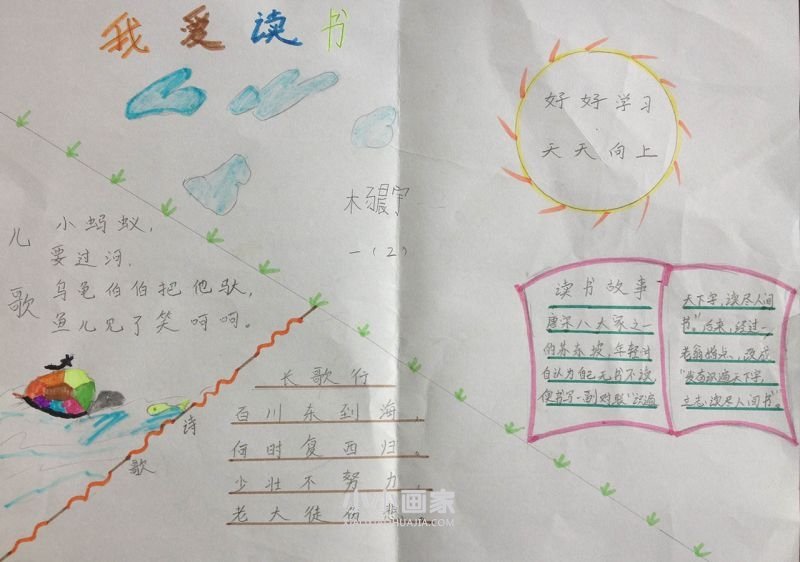 我爱读书
好好学习
天天向上
一(2)
儿歌
小蚂蚁,
要过河.
乌龟伯伯把他驮,
鱼儿见了笑呵呵。
诗歌
长歌行
百川东到海,
何时复西归。
少壮不努力,
老大徒伤悲。
读书故事
唐宋八大家之一
的苏东坡,年轻时
自认为自己无书不读
便书写一副对联"识遍
天下字,读尽人间
书。"后来,经过一
老翁指点,改成
"发奋识遍天下字,
立志读尽人间书"。
小小画家
XIAOXIAOHUAJIA.COM